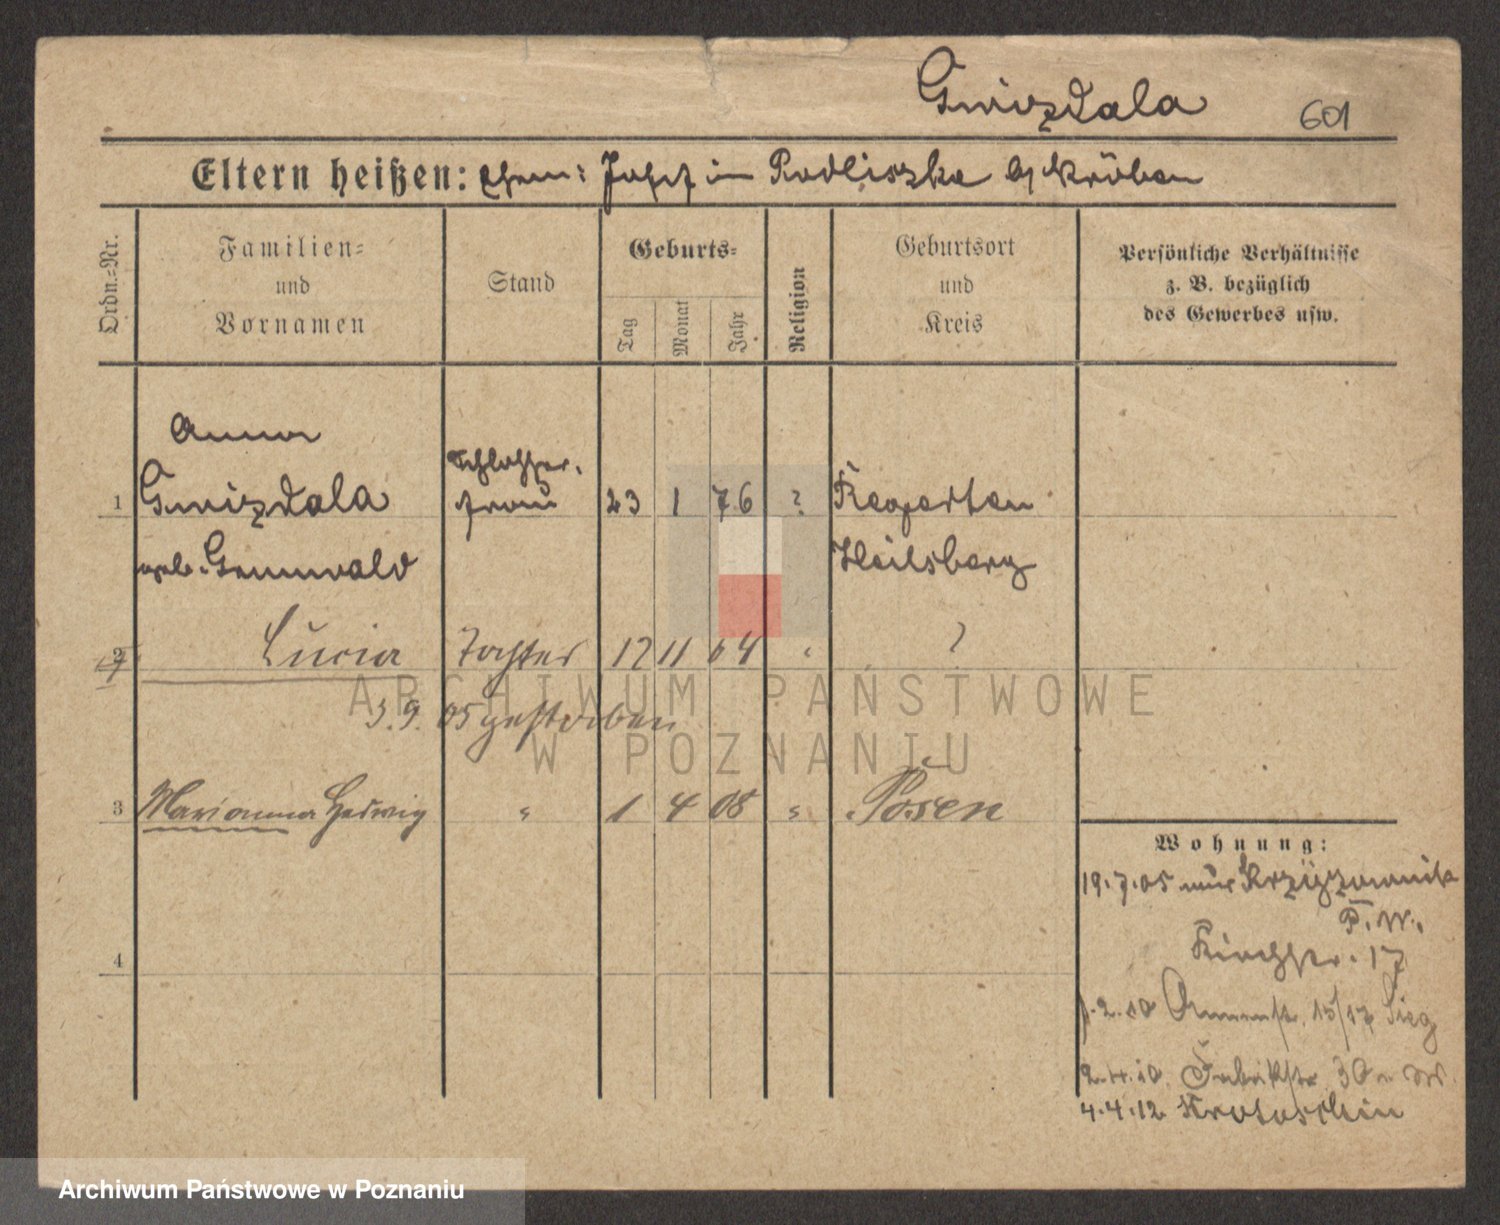 Gwizdala 601
Eltern heißen: Ehem: Josef in Podliszka b/ Kröben
Ordn.=Nr.
Familien=
und
Vornamen
Stand
Geburts=
Tag
Monat
Jahr
Religion
Geburtsort
und
Kreis
Persönliche Verhältnisse
z. B. bezüglich
des Gewerbes usw.
Anna
Schlosser.
1 Gwizdala frau 23 1 76 ? Regerteln
geb. Grunwald Heilsberg
2 Lucia Tochter 12 11 04 " ?
3.9.05 gestorben
3 Marianna Hedwig " 1 4 08 " Posen
4
Wohnung:
19.7.05 aus Krzyzownik
P.W.
Kirchstr. 17
2.10 Annenstr. 15/17 Sieg
2.4.10 Fabrikstr. 30
4.4.12 Krotoschin
ARCHIWUM PAŃSTWOWE
W POZNANIU
Archiwum Państwowe w Poznaniu